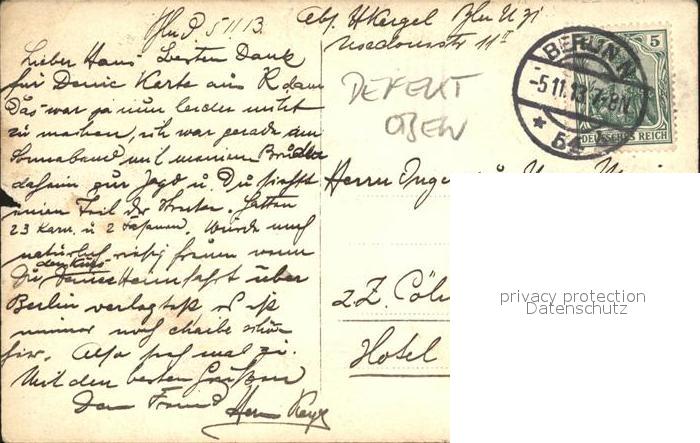 Bln P. 5 11 13.
Abs. H Kergel Bln N 31
Usedomstr 11 II
Lieber Hans Besten Dank
für Deine Karte aus R.dam
Das war ja nun leider nicht
zu machen, ich war gerade am
Sonnabend mit meinem Bruder
daheim zur Jagd u. Du
einen Teil der Strecke. Hatten
23 Karn. u 2 Fasanen. Würde mich
natürlich riesig freuen wenn
Du Deine Heimfahrt über
Berlin verlegtest es ist
immer noch schön
hier. Also
Mit den besten Grüßen
Dein Freund
DEFEKT
OBEN
BERLIN N
-5.11.13.7-8N.
* 54
5
DEUTSCHES REICH
Herrn Ing
z. Z. Cöln
Hotel
privacy protection
Datenschutz